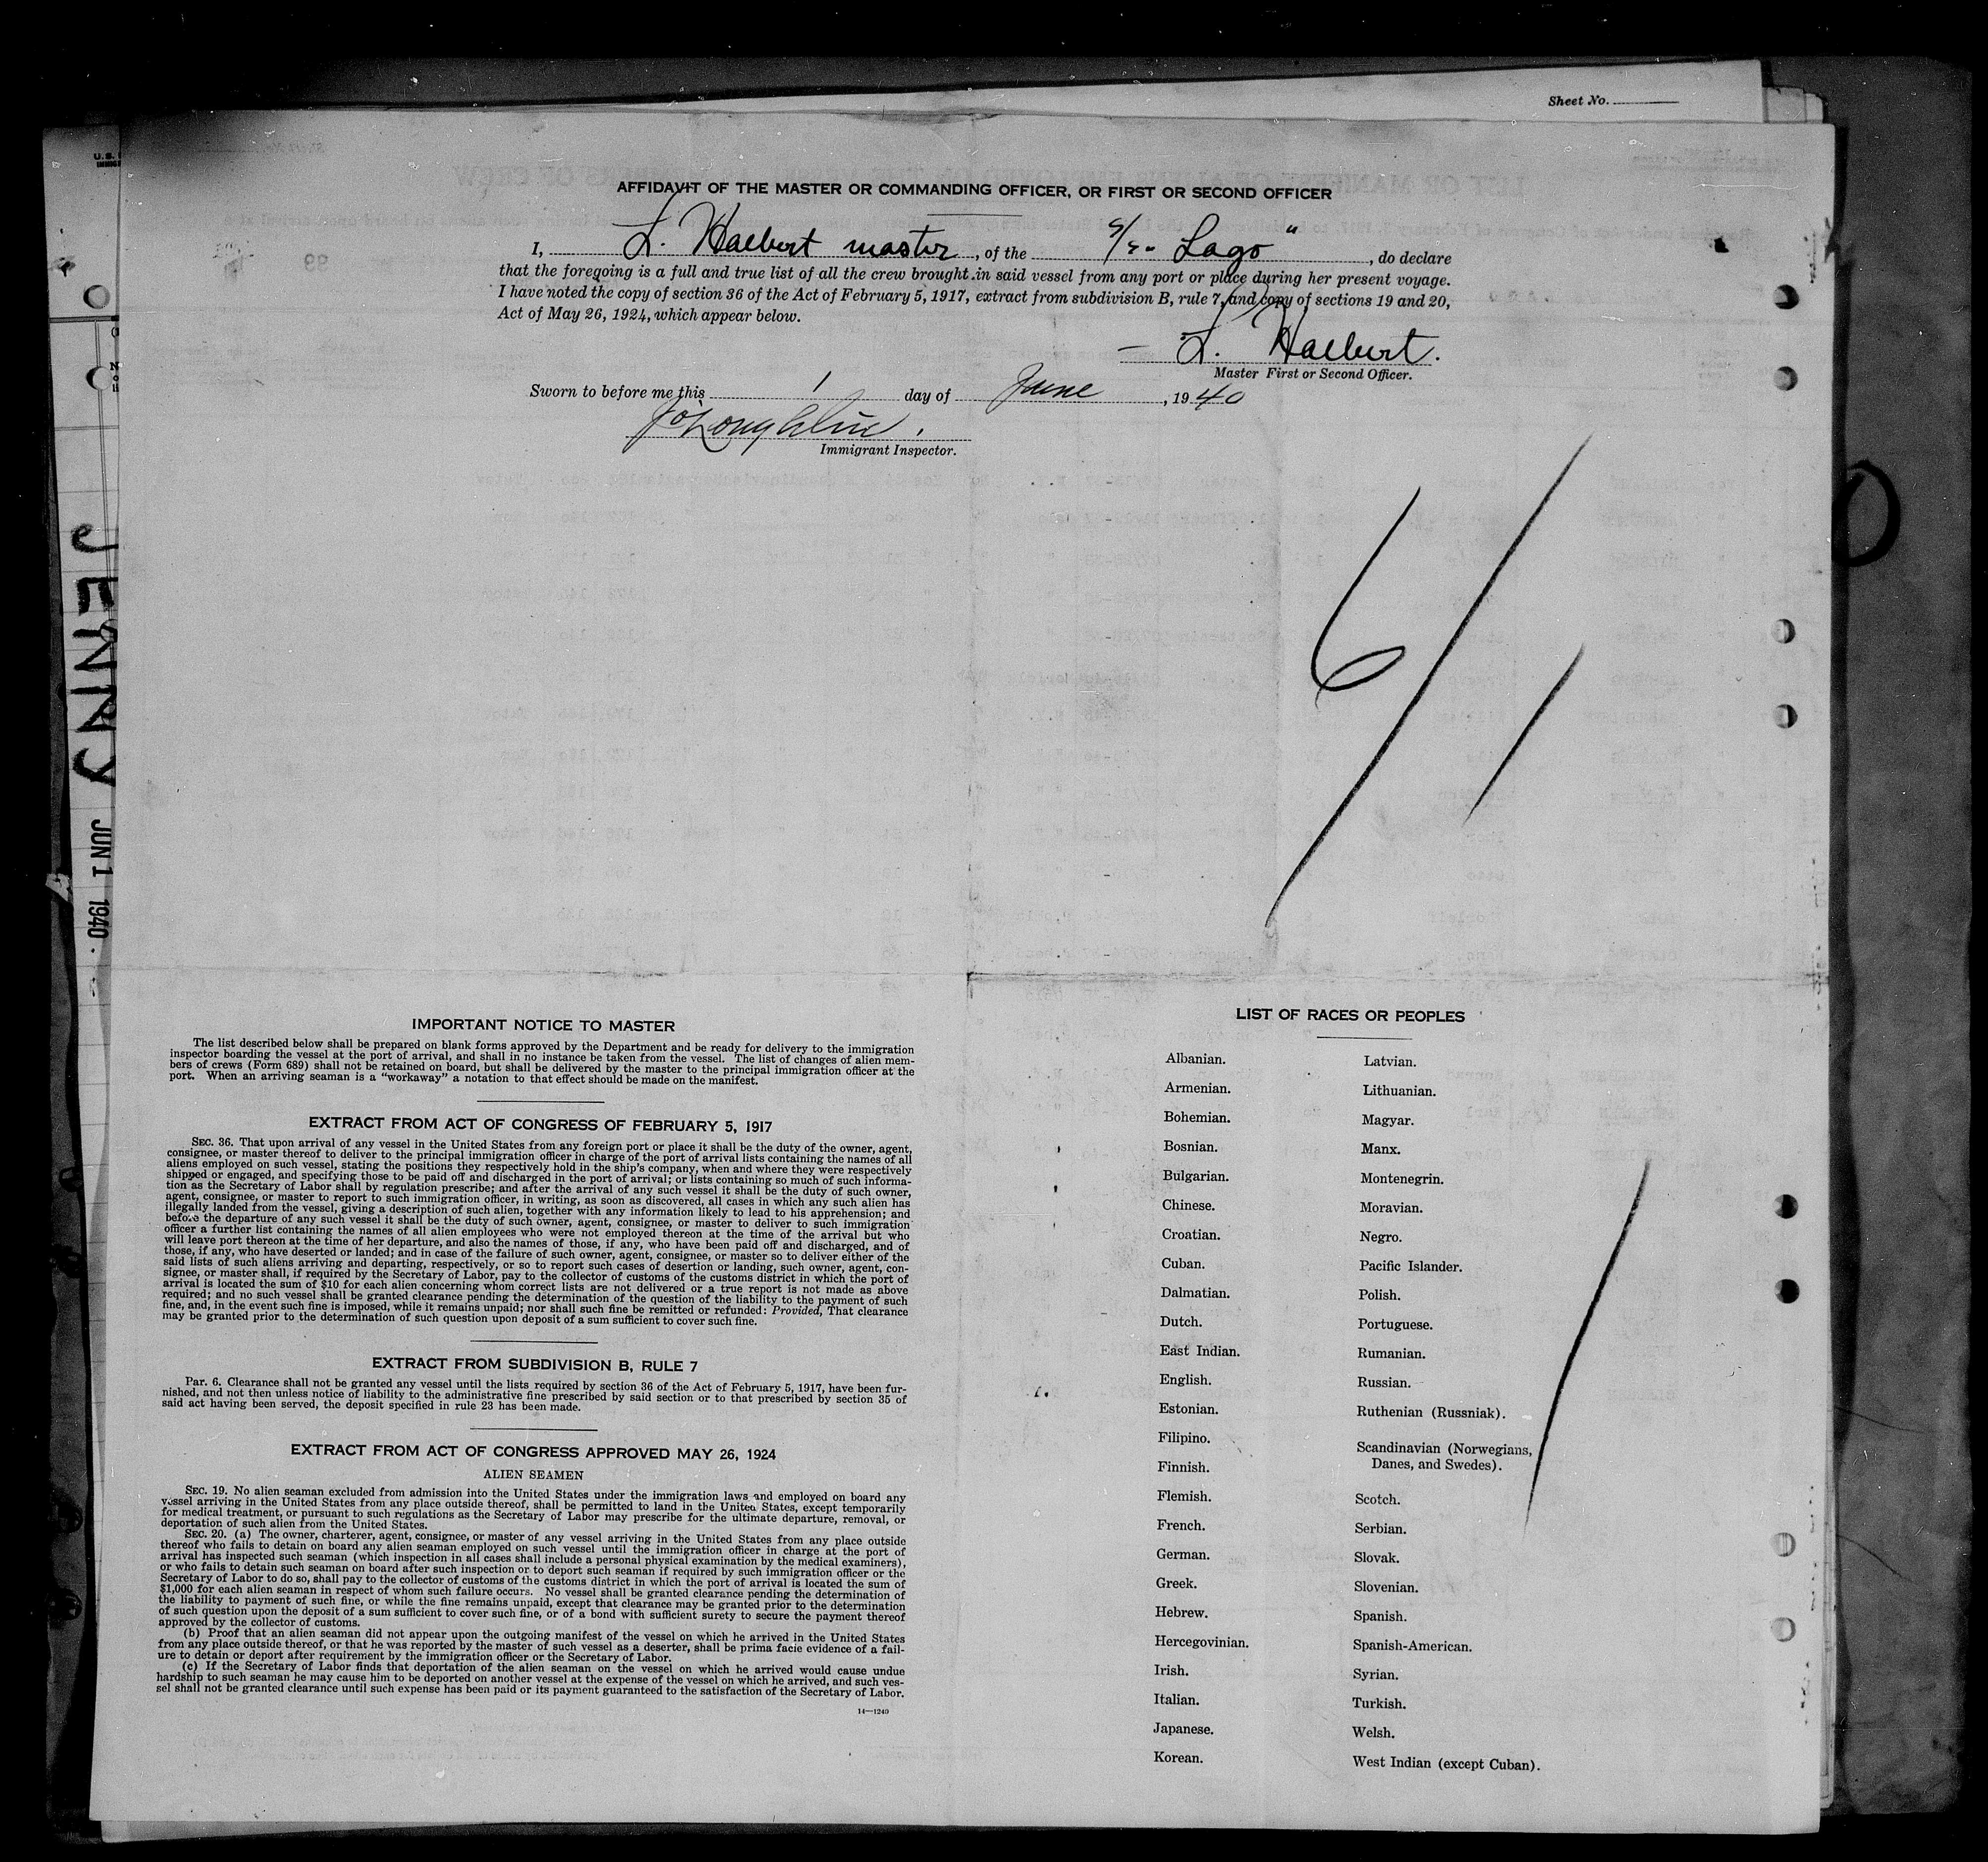 Sheet No.
U.S.
JENNY JUN 1 1940
AFFIDAVIT OF THE MASTER OR COMMANDING OFFICER, OR FIRST OR SECOND OFFICER
I, L. Halbert master, of the S/S. Lago", do declare
that the foregoing is a full and true list of all the crew brought in said vessel from any port or place during her present voyage.
I have noted the copy of section 36 of the Act of February 5, 1917, extract from subdivision B, rule 7, and copy of sections 19 and 20,
Act of May 26, 1924, which appear below.
L. Halbert.
Master First or Second Officer.
Sworn to before me this 1 day of June, 1940
Immigrant Inspector.
6/1
IMPORTANT NOTICE TO MASTER
The list described below shall be prepared on blank forms approved by the Department and be ready for delivery to the immigration
inspector boarding the vessel at the port of arrival, and shall in no instance be taken from the vessel. The list of changes of alien mem-
bers of crews (Form 689) shall not be retained on board, but shall be delivered by the master to the principal immigration officer at the
port. When an arriving seaman is a "workaway" a notation to that effect should be made on the manifest.
EXTRACT FROM ACT OF CONGRESS OF FEBRUARY 5, 1917
SEC. 36. That upon arrival of any vessel in the United States from any foreign port or place it shall be the duty of the owner, agent,
consignee, or master thereof to deliver to the principal immigration officer in charge of the port of arrival lists containing the names of all
aliens employed on such vessel, stating the positions they respectively hold in the ship's company, when and where they were respectively
shipped or engaged, and specifying those to be paid off and discharged in the port of arrival; or lists containing so much of such informa-
tion as the Secretary of Labor shall by regulation prescribe; and after the arrival of any such vessel it shall be the duty of such owner,
agent, consignee, or master to report to such immigration officer, in writing, as soon as discovered, all cases in which any such alien has
illegally landed from the vessel, giving a description of such alien, together with any information likely to lead to his apprehension; and
before the departure of any such vessel it shall be the duty of such owner, agent, consignee, or master to deliver to such immigration
officer a further list containing the names of all alien employees who were not employed thereon at the time of the arrival but who
will leave port thereon at the time of her departure, and also the names of those, if any, who have been paid off and discharged, and of
those, if any, who have deserted or landed; and in case of the failure of such owner, agent, consignee, or master so to deliver either of the
said lists of such aliens arriving and departing, respectively, or so to report such cases of desertion or landing, such owner, agent, con-
signee, or master shall, if required by the Secretary of Labor, pay to the collector of customs of the customs district in which the port of
arrival is located the sum of $10 for each alien concerning whom correct lists are not delivered or a true report is not made as above
required; and no such vessel shall be granted clearance pending the determination of the question of the liability to the payment of such
fine, and, in the event such fine is imposed, while it remains unpaid; nor shall such fine be remitted or refunded: Provided, That clearance
may be granted prior to the determination of such question upon deposit of a sum sufficient to cover such fine.
EXTRACT FROM SUBDIVISION B, RULE 7
PAR. 6. Clearance shall not be granted any vessel until the lists required by section 36 of the Act of February 5, 1917, have been fur-
nished, and not then unless notice of liability to the administrative fine prescribed by said section or to that prescribed by section 35 of
said act having been served, the deposit specified in rule 23 has been made.
EXTRACT FROM ACT OF CONGRESS APPROVED MAY 26, 1924
ALIEN SEAMEN
SEC. 19. No alien seaman excluded from admission into the United States under the immigration laws and employed on board any
vessel arriving in the United States from any place outside thereof, shall be permitted to land in the United States, except temporarily
for medical treatment, or pursuant to such regulations as the Secretary of Labor may prescribe for the ultimate departure, removal, or
deportation of such alien from the United States.
SEC. 20. (a) The owner, charterer, agent, consignee, or master of any vessel arriving in the United States from any place outside
thereof who fails to detain on board any alien seaman employed on such vessel until the immigration officer in charge at the port of
arrival has inspected such seaman (which inspection in all cases shall include a personal physical examination by the medical examiners),
or who fails to detain such seaman on board after such inspection or to deport such seaman if required by such immigration officer or the
Secretary of Labor to do so, shall pay to the collector of customs of the customs district in which the port of arrival is located the sum of
$1,000 for each alien seaman in respect of whom such failure occurs. No vessel shall be granted clearance pending the determination of
the liability to payment of such fine, or while the fine remains unpaid, except that clearance may be granted prior to the determination
of such question upon the deposit of a sum sufficient to cover such fine, or of a bond with sufficient surety to secure the payment thereof
approved by the collector of customs.
(b) Proof that an alien seaman did not appear upon the outgoing manifest of the vessel on which he arrived in the United States
from any place outside thereof, or that he was reported by the master of such vessel as a deserter, shall be prima facie evidence of a fail-
ure to detain or deport after requirement by the immigration officer or the Secretary of Labor.
(c) If the Secretary of Labor finds that deportation of the alien seaman on the vessel on which he arrived would cause undue
hardship to such seaman he may cause him to be deported on another vessel at the expense of the vessel on which he arrived, and such ves-
sel shall not be granted clearance until such expense has been paid or its payment guaranteed to the satisfaction of the Secretary of Labor.
14—1240
LIST OF RACES OR PEOPLES
Albanian.
Armenian.
Bohemian.
Bosnian.
Bulgarian.
Chinese.
Croatian.
Cuban.
Dalmatian.
Dutch.
East Indian.
English.
Estonian.
Filipino.
Finnish.
Flemish.
French.
German.
Greek.
Hebrew.
Hercegovinian.
Irish.
Italian.
Japanese.
Korean.
Latvian.
Lithuanian.
Magyar.
Manx.
Montenegrin.
Moravian.
Negro.
Pacific Islander.
Polish.
Portuguese.
Rumanian.
Russian.
Ruthenian (Russniak).
Scandinavian (Norwegians,
Danes, and Swedes).
Scotch.
Serbian.
Slovak.
Slovenian.
Spanish.
Spanish-American.
Syrian.
Turkish.
Welsh.
West Indian (except Cuban).